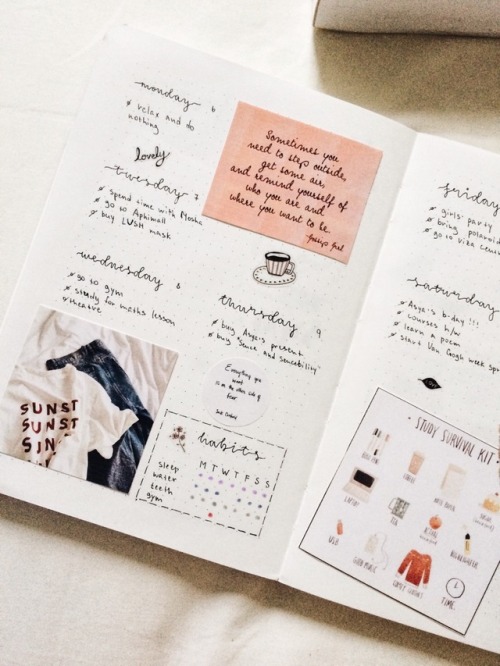 monday 6
relax and do
nothing
lovely
tuesday 7
spend time with Mosha
go to Aphimall
buy LUSH mask
wednesday 8
go to gym
steady for maths lesson
theatre
Sometimes you
need to step outside,
get some air,
and remind yourself of
who you are and
where you want to be.
Gossip Girl
thursday 9
buy Asya's present
buy "Sence and Sencebility"
Everything you
want
is on the other side of
fear
SUNST
SUNST
SUN
habits
M T W T F S S
sleep
water
teeth
gym
friday
girls' party
bring polaroid
go to
saturday
Asya's b-day !!!
courses h/w
learn a poem
start Van Gogh week
• STUDY SURVIVAL KIT
LAPTOP
TEA
USB
GOOD MUSIC
COMFY
HIGHLIGHTER
TIME